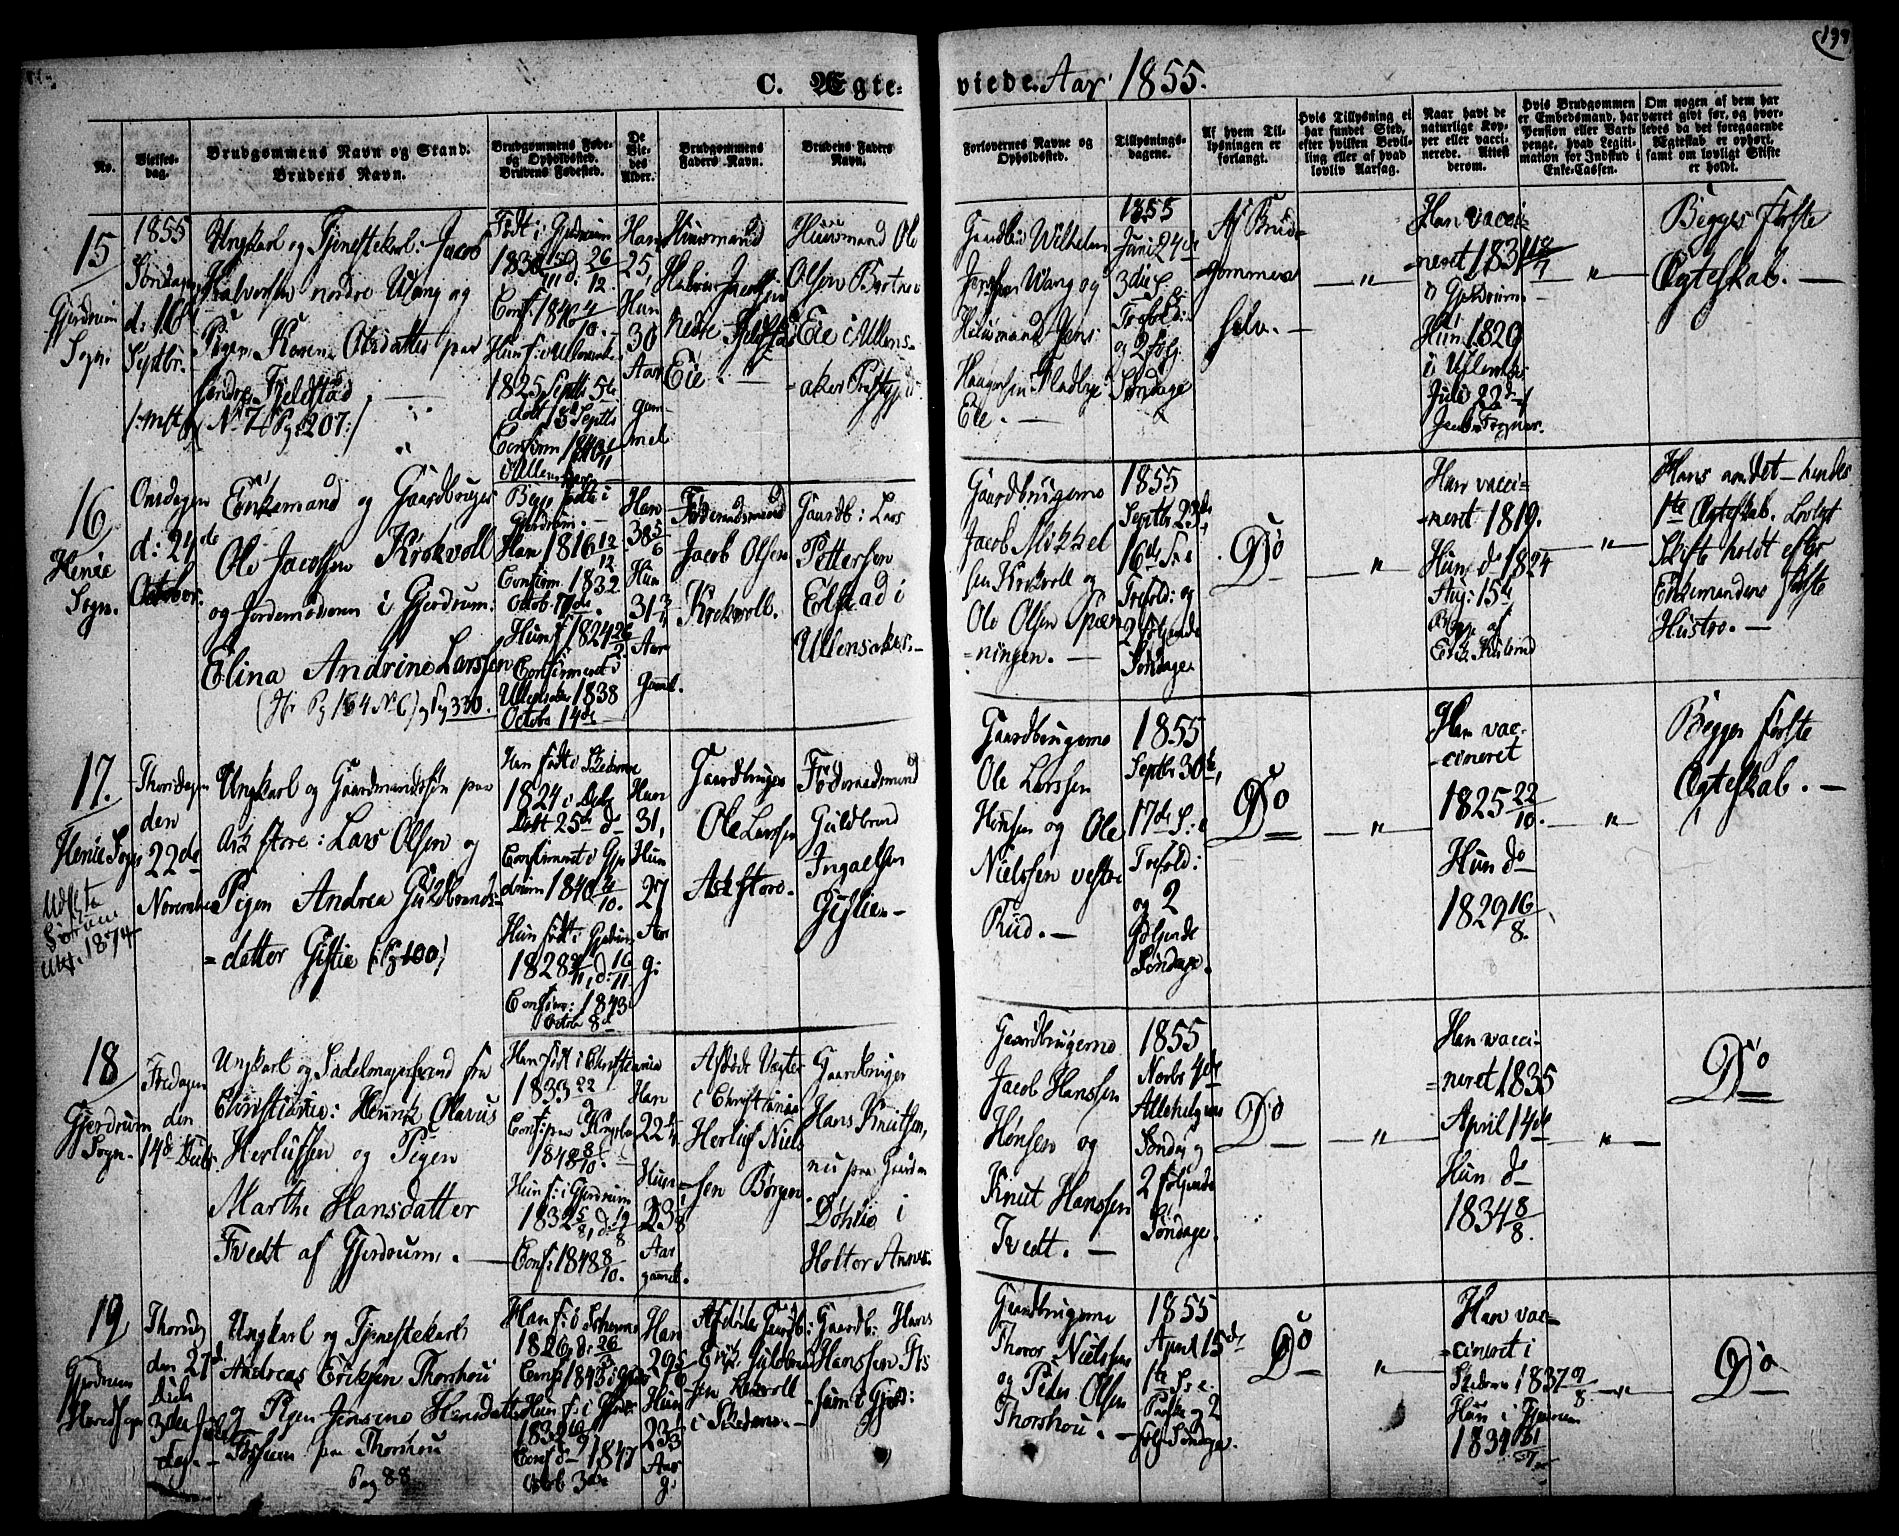 C. Ægte-
viede. Aar 1855.
199
No.
Vielses-
dag.
Brudgommens Navn og Stand.
Brudens Navn.
Brudgommens Føde-
og Opholdssted.
Brudens Fødested.
De
Vie-
des
Alder.
Brudgommens
Faders Navn.
Brudens Faders
Navn.
Forlovernes Navne og
Opholdssted.
Tillysnings-
dagene.
Af hvem Til-
lysningen er
forlangt.
Hvis Tillysning ei
har fundet Sted,
efter hvilken Bevil-
ling eller af hvad
lovliv Aarsag.
Naar havt de
naturlige Kop-
per eller vacci-
nerede. Attest
derom.
Hvis Brudgommen
er Embedsmand, har
Pension eller Vart-
penge, hvad Legiti-
mation for Indskud i
Enke-Cassen.
Om nogen af dem har
været gift før, og hvor-
ledes da det foregaaende
Ægteskab er ophørt,
samt om lovligt Skifte
er holdt.
15
Gjerdrum
Sogn.
1855
Søndagen
d: 16de
Septbr.
Ungkarl og Tjenestekarl: Jacob
Halvorsen nordre Wang og
Pigen Karen Olsdatter paa
søndre Fjeldstad
No 7 Pg 207:/
Født i Gjerdrum
1825 Septb 5te
Han
25,
Hun
30
Aar
gam-
mel
Huusmand
Halvor Jacobsen
nedre Fjeldstad
Eie. —
Huusmand Ole
Olsen
Eie i Ullens-
aker Præstegjd
Gaardbr Wilhelm
Wang og
Huusmand Jens
Haagensen Fladbye
Eie. —
1855
Juni 24de
3die S. e.
Trefold:
og 2 følg.
Søndage
Af Brud-
gommen
selv. —
— " —
Han vacci-
neret 1831
i Gjerdrum.
Hun 1829
i Ullensaker
Julii 22de
— " —
Begges første
Ægteskab. —
16
Henie
Sogn.
Onsdagen
d: 24de
October.
Enkemand og Gaardbruger
Ole Jacobsen Krokvoll
og Jordemoderen i Gjerdrum:
Elina Andrine Larssen
Begge fødte i
Gjerdrum. —
Han 1816 12/12
Confirm. 1832
Octob. 17de
Hun f. 1824 26/2
Confirmeret i
Ullensaker 1838
Octobr 14de
Han
38 5/6
Hun
31
Aar
Gaml.
Føderaadsmand
Jacob Olsen
Krokvoll.
Gaardb: Lars
Pettersen
i
Ullensaker. —
Gaardbrugerne
Jacob Mikkel-
sen Krokvoll og
Ole Olsen Spæn-
ningen. —
1855
Septbr 23de,
16de S. e
Trefold: og
2 følgende
Søndage
Do
— " —
Han vacci-
neret 1819.
Hun do 1824
Aug: 15de
Begge af
— " —
Hans andet — hendes
1te Ægteskab. Lovligt
Skifte holdt efter
Enkemandens første
Hustro. —
17.
Henie Sogn
Udflytn
Sørum
1874
Thorsdagen
den
22de
November
Ungkarl og Gaardmandssøn paa
Ask store: Lars Olsen og
Pigen Andrea Guldbrands-
datter Gistie (Pg 100)
Han født i Skedsmo
1824 i
Døbt 25de do
Confirmeret i Gjer
drum 1840
Hun født i Gjerdrum
1828
Confirm: 1843
Octobr 8de
Han
31,
Hun
27
Aar
g:
Gaardbruger
Ole Larssen
Ask store. —
Føderaadsmand
Guldbrand
Ingvalsen
Gistie —
Gaardbrugerne
Ole Larssen
Hønsen og Ole
Nielssen vestre
Rud. —
1855
Septbr 30te,
17de S. e
Trefold:
og 2
følgende
Søndage.
Do
— " —
Han vac-
cineret
1825 22/10.
Hun do
1829 16/8.
— " —
Begges første
Ægteskab. —
18
Gjerdrum
Sogn.
Fredagen
den
14de Decbr
Ungkarl og Sadelmagersvend fra
Christiania: Henrik Olavus
Herlufsen og Pigen
Marthe Hansdatter
Tvedt af Gjerdrum. —
Han født i Christiania
1833 22/9
1848 8/10.
Hun f: i Gjerdrum
1832
Conf: 1848 8/10.
Han
22
Hun
23
Aar
gamml.
Afdøde Vægter
i Christiania
Herluf Niels-
sen Børgen
Gaardbruger
Hans Knutsen,
nu paa Gaarden
Døhlie i
Holter Annex.
Gaardbrugerne
Jacob Hanssen
Hønsen og
Knut Hanssen
Tvedt. —
1855
Novbr 4de
Allehelgens
Søndag og
2 følgende
Søndage.
Do
— " —
Han vacci-
neret 1835
April 14de
Hun do
1834 8/8.
— " —
Do
19
Gjerdrum
Hovedsogn
Thorsdag
den 27de
Decbr
3die Jule-
dag. —
Ungkarl og Tjenestekarl
Andreas Eriksen Thorshou
og Pigen Jensine Hansdatter
paa Thorshou
Pag 88
Han f: i Skedsmo
1826
Hun f: i Gjerdr
1832
Conf do 1847
Octob 3die
Han
29
Hun
23
Aar
g:
Afdøde Gaardb:
Erik Guldbrand-
sen
i Skedsmo. —
Gaardb: Hans
Hanssen
i Gjerd:
Gaardbrugerne
Thorer Nielssen
og Peder Olsen
Thorshou. —
1855
April 15de
1te S. e.
Paaske og 2
følg Søndage.
Do
— " —
Han vac-
cineret i
Skedsmo 1837 9/8
Hun i Gjerdrum
1834
— " —
Do